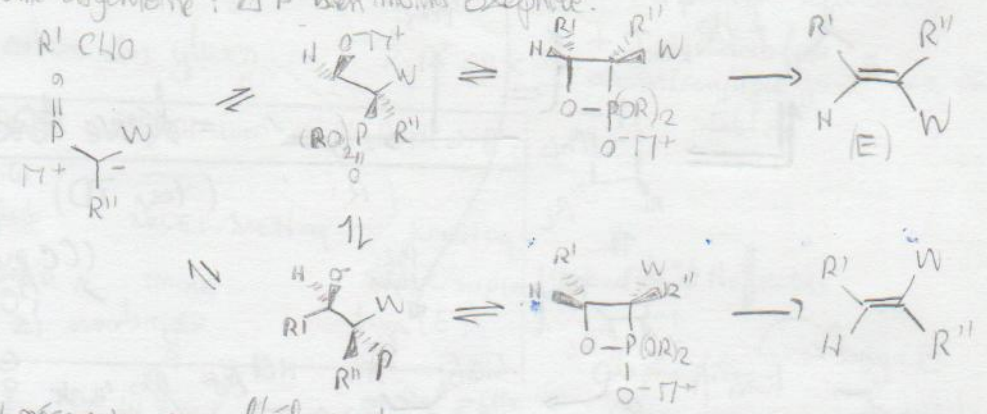 R' CHO
O
P
W
M+
-
R''
H
O-M+
W
(RO)2
P
R''
O
R'
R''
H
W
O-P(OR)2
O-M+
R'
R''
H
W
(E)
H
O-
W
R'
R''
P
R'
W
H
O-P(OR)2
O-M+
R'
W
H
R''